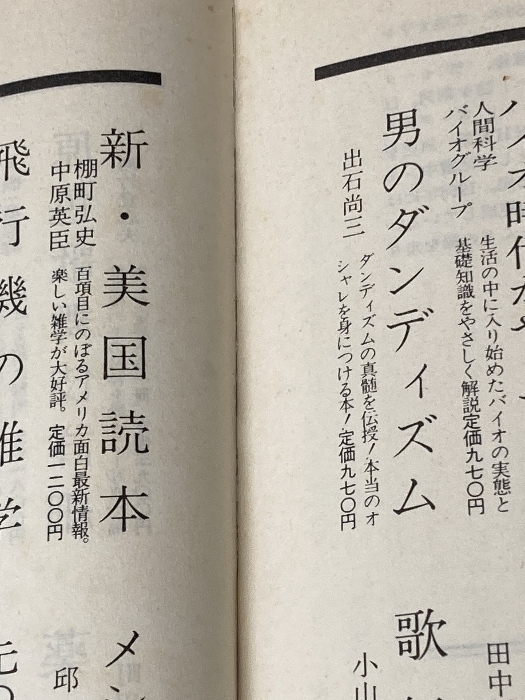 イオ時代が
人間科学
バイオグループ
生活の中に入り始めたバイオの実態と
基礎知識をやさしく解説定価九七〇円
男のダンディズム
出石尚三
ダンディズムの真髄を伝授!本当のオ
シャレを身につける本!定価九七〇円
田中
歌
小山
新・美国読本
棚町弘史
中原英臣
百項目にのぼるアメリカ面白最新情報。
楽しい雑学が大好評。定価一二〇〇円
飛行機の雑学
メン
邱
元